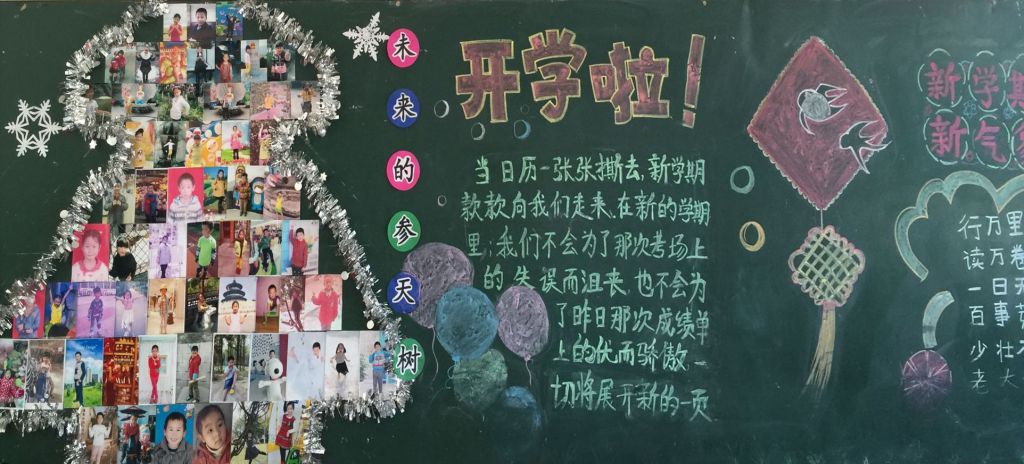 未来的参天树
开学啦！
当日历一张张撕去，新学期
款款向我们走来，在新的学期
里，我们不会为了那次考场上
的失误而沮丧，也不会为
了昨日那次成绩单
上的优而骄傲，一
切将展开新的一页
新学期
新气
行万里
读万卷
一日
百事
少壮
老大